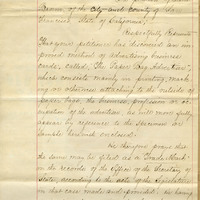 Brown of the City and County of San
Francisco State of California
Respectfully Represents
That your petitioner has discovered an im-
proved method of advertising business
cards, called "The Paper Bag Advertiser",
which consists mainly in printing, mark-
ing or otherwise attaching to the outside of
paper bags, the business, profession or oc-
cupation of the advertiser, as will more fully
appear by reference to the Specimen or
Sample herewith enclosed.
He therefore prays that
the same may be filed as a "Trade Mark"
in the records of the Office of the Secretary of
State, according to the acts of the Legislature
in that case made and provided. He having